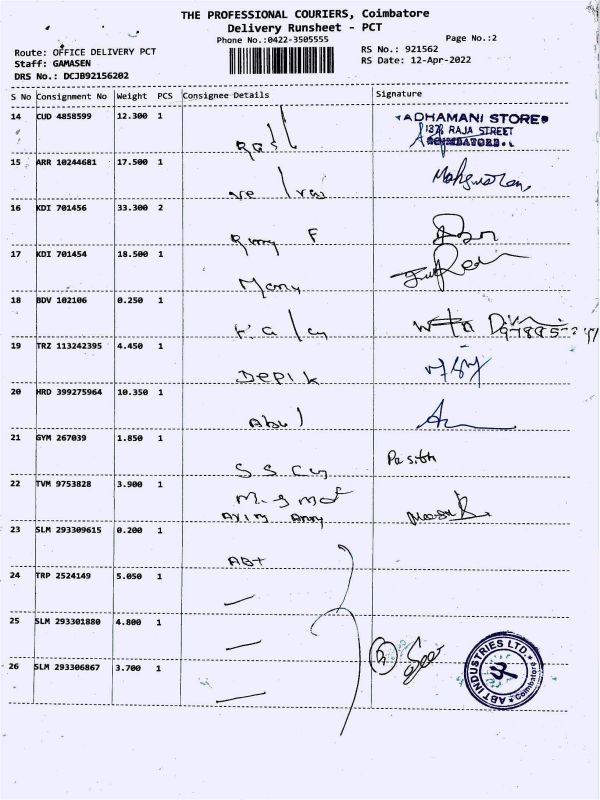 THE PROFESSIONAL COURIERS, Coimbatore
Delivery Runsheet - PCT
Phone No.:0422-3505555
Page No.:2
Route: OFFICE DELIVERY PCT
RS No.: 921562
Staff: GAMASEN
RS Date: 12-Apr-2022
DRS No.: DCJB92156202
S No Consignment No Weight PCS Consignee Details Signature
14 CUD 4858599 12.300 1
ADHAMANI STORES
RAJA STREET
COIMBATORE
15 ARR 10244681 17.500 1
16 KDI 701456 33.300 2
17 KDI 701454 18.500 1
Mony
18 BDV 102106 0.250 1
19 TRZ 113242395 4.450 1
Depik
20 HRD 399275964 10.350 1
Abul
21 GYM 267039 1.850 1
22 TVM 9753828 3.900 1
23 SLM 293309615 0.200 1
ABT
24 TRP 2524149 5.050 1
25 SLM 293301880 4.800 1
26 SLM 293306867 3.700 1
5
ABT INDUSTRIES LTD.
Coimbatore